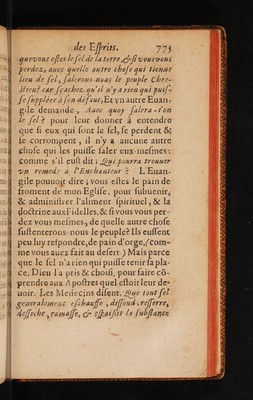 des Esprits. 773
que vous estes le sel de la terre, & si vous vous
perdez, auec quelle autre chose qui tienne
lieu de sel, salerons-nous le peuple Chre-
stien? car sçachez qu'il n'y a rien qui puis-
se suppléer à son défaut, Et vn autre Euan-
gile demande, Auec quoy salera-t'on
le sel? pour leur donner à entendre
que si eux qui sont le sel, se perdent &
se corrompent, il n'y a aucune autre
chose qui les puisse saler eux-mesmes:
comme s'il eust dit: Qui pourra trouuer
vn remede à l'Enchanteur? L'Euan-
gile pouuoit dire; vous estes le pain de
froment de mon Eglise, pour subuenir,
& administrer l'aliment spirituel, & la
doctrine aux Fidelles, & si vous vous per-
dez vous mesmes, de quelle autre chose
sustenterons-nous le peuple? Ils eussent
peu luy respondre, de pain d'orge, (com-
me vous auez fait au desert) Mais parce
que le sel n'a rien qui puisse tenir sa pla-
ce, Dieu l'a pris & choisi, pour faire cō-
prendre aux Apostres quel estoit leur de-
uoir. Les Medecins disent, Que tout sel
generalement eschauffe, dissoud, resserre,
desseche, ramasse, & espaissit la substance